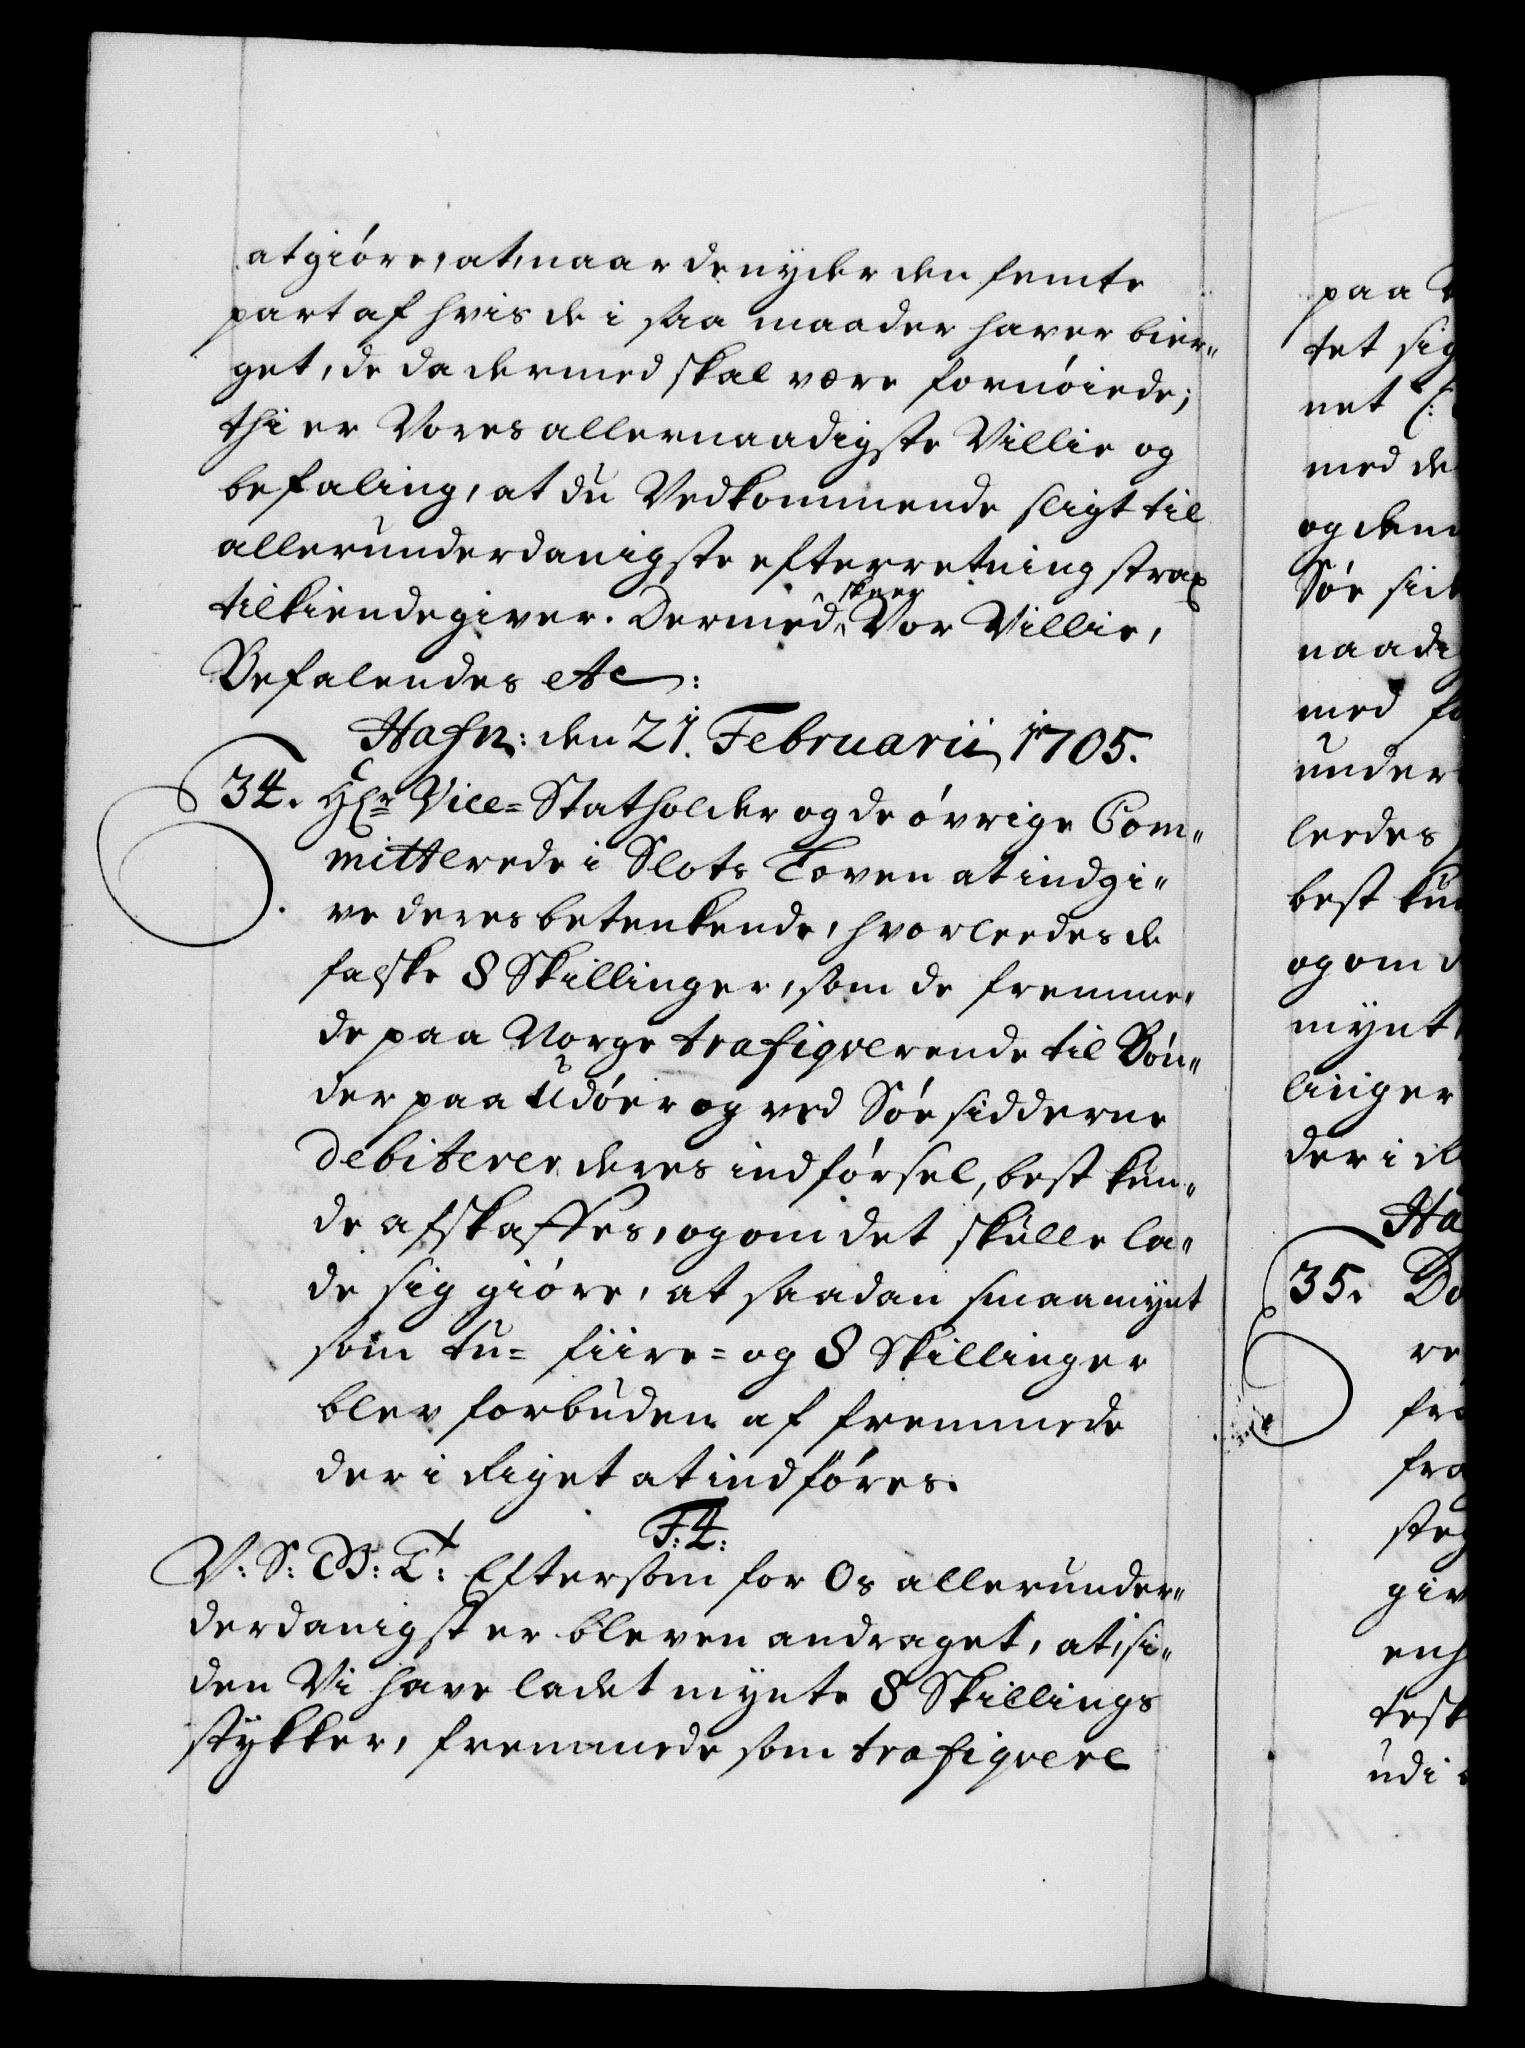 at giøre, at, naar de nyder den femte
part af hvis de i saa maader haver bier„
get, de da dermed skal være fornøiede;
thi er Vores allernaadigste Villie og
befaling, at du Vedkommende sligt til
allerunderdanigste efterretning strax
tilkiendegiver. Dermed skeer Vor Villie,
Befalendes etc:
Hafn: den 21. Februarii 1705.
34. HEr Vice=Statholder og de øvrige Com„
mitterede i Slots Loven at indgi„
ve deres betenkende, hvorleedes de
falske 8 Skillinger, som de fremme„
de paa Norge trafiqverende til Bøn„
der paa Udøer og ved Søe sidderne
debiterer, deres indførsel, best kun„
de afskaffes, og om det skulle la„
de sig giøre, at saadan smaamynt
som tu= fiire= og 8 Skillinger
blev forbuden af fremmede
der i Riget at indføres.
F: 4:
V: S: G: T: Eftersom for Os allerunder„
derdanigst er bleven andraget, at, si„
den Vi have ladet mynte 8 Skillings
stykker, fremmede som trafiqvere
paa
tet sig
net
med de
og dem
Søe
naadi
med
under
leedes
best
og om
mynt
linger
der i
Ha
35. Do
re
fra
giv
udi